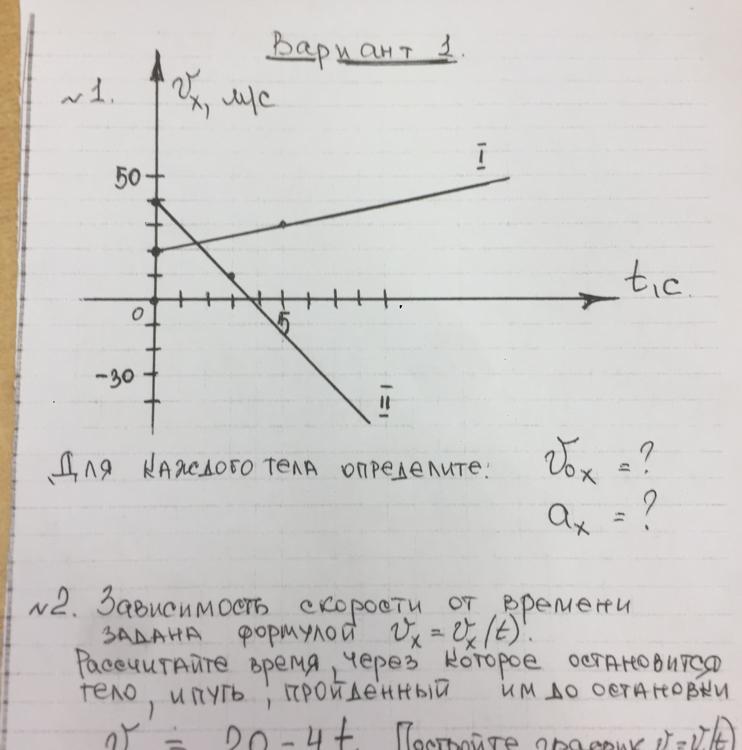 Вариант 1.
№1.
vₓ, м/с
I
50
t,с.
0
5
-30
II
Для каждого тела определите: v₀ₓ = ?
aₓ = ?
№2. Зависимость скорости от времени
задана формулой vₓ = vₓ(t).
Рассчитайте время, через которое остановится
тело, и путь, пройденный им до остановки
v = 20 - 4t. Постройте график v=v(t)